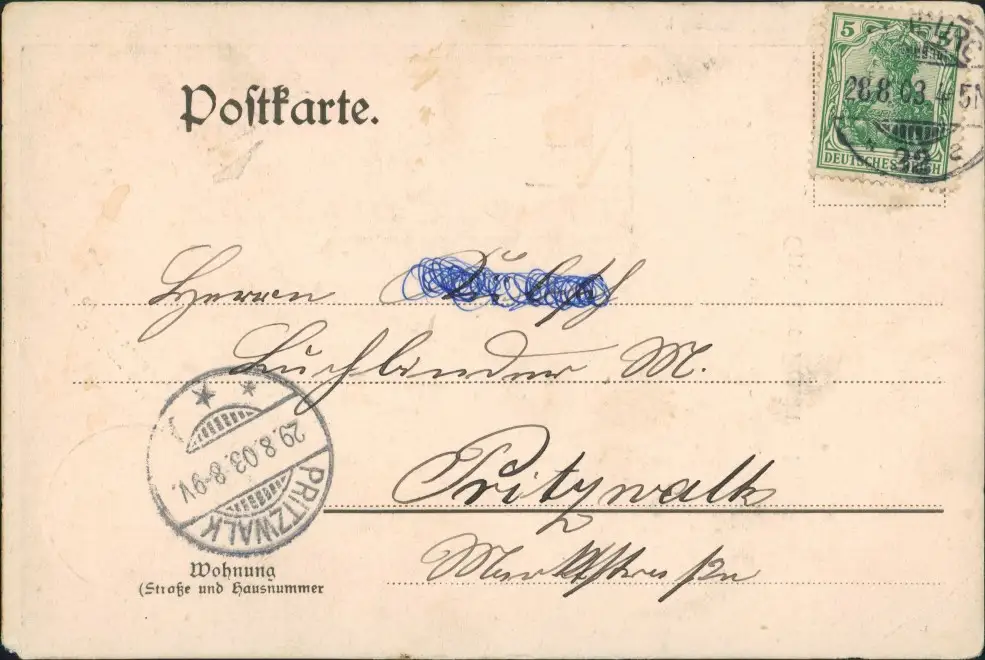 Postkarte.
5
28.8.03.4-5N
DEUTSCHES REICH
Herrn
Buchbinder M.
Pritzwalk
Marktstraße
PRITZWALK
29.8.03.8-9V.
Wohnung
(Straße und Hausnummer